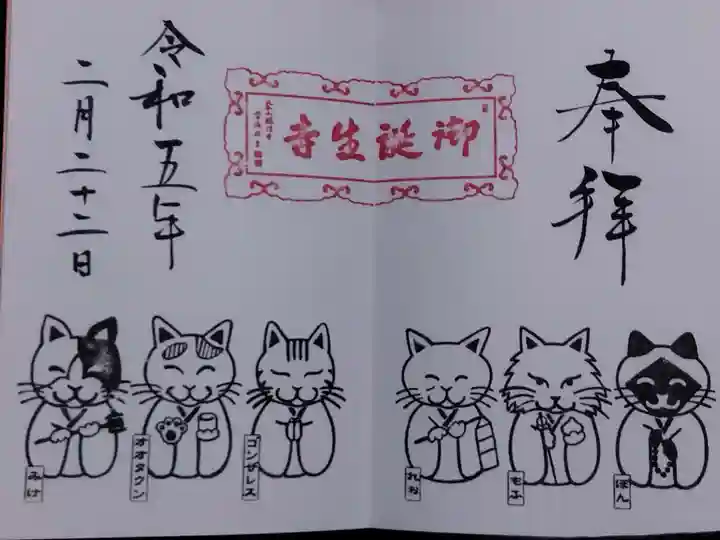 奉拝
御誕生寺
令和五年
二月二十二日
みけ
オオタクン
ゴンザレス
れお
もふ
ぽん